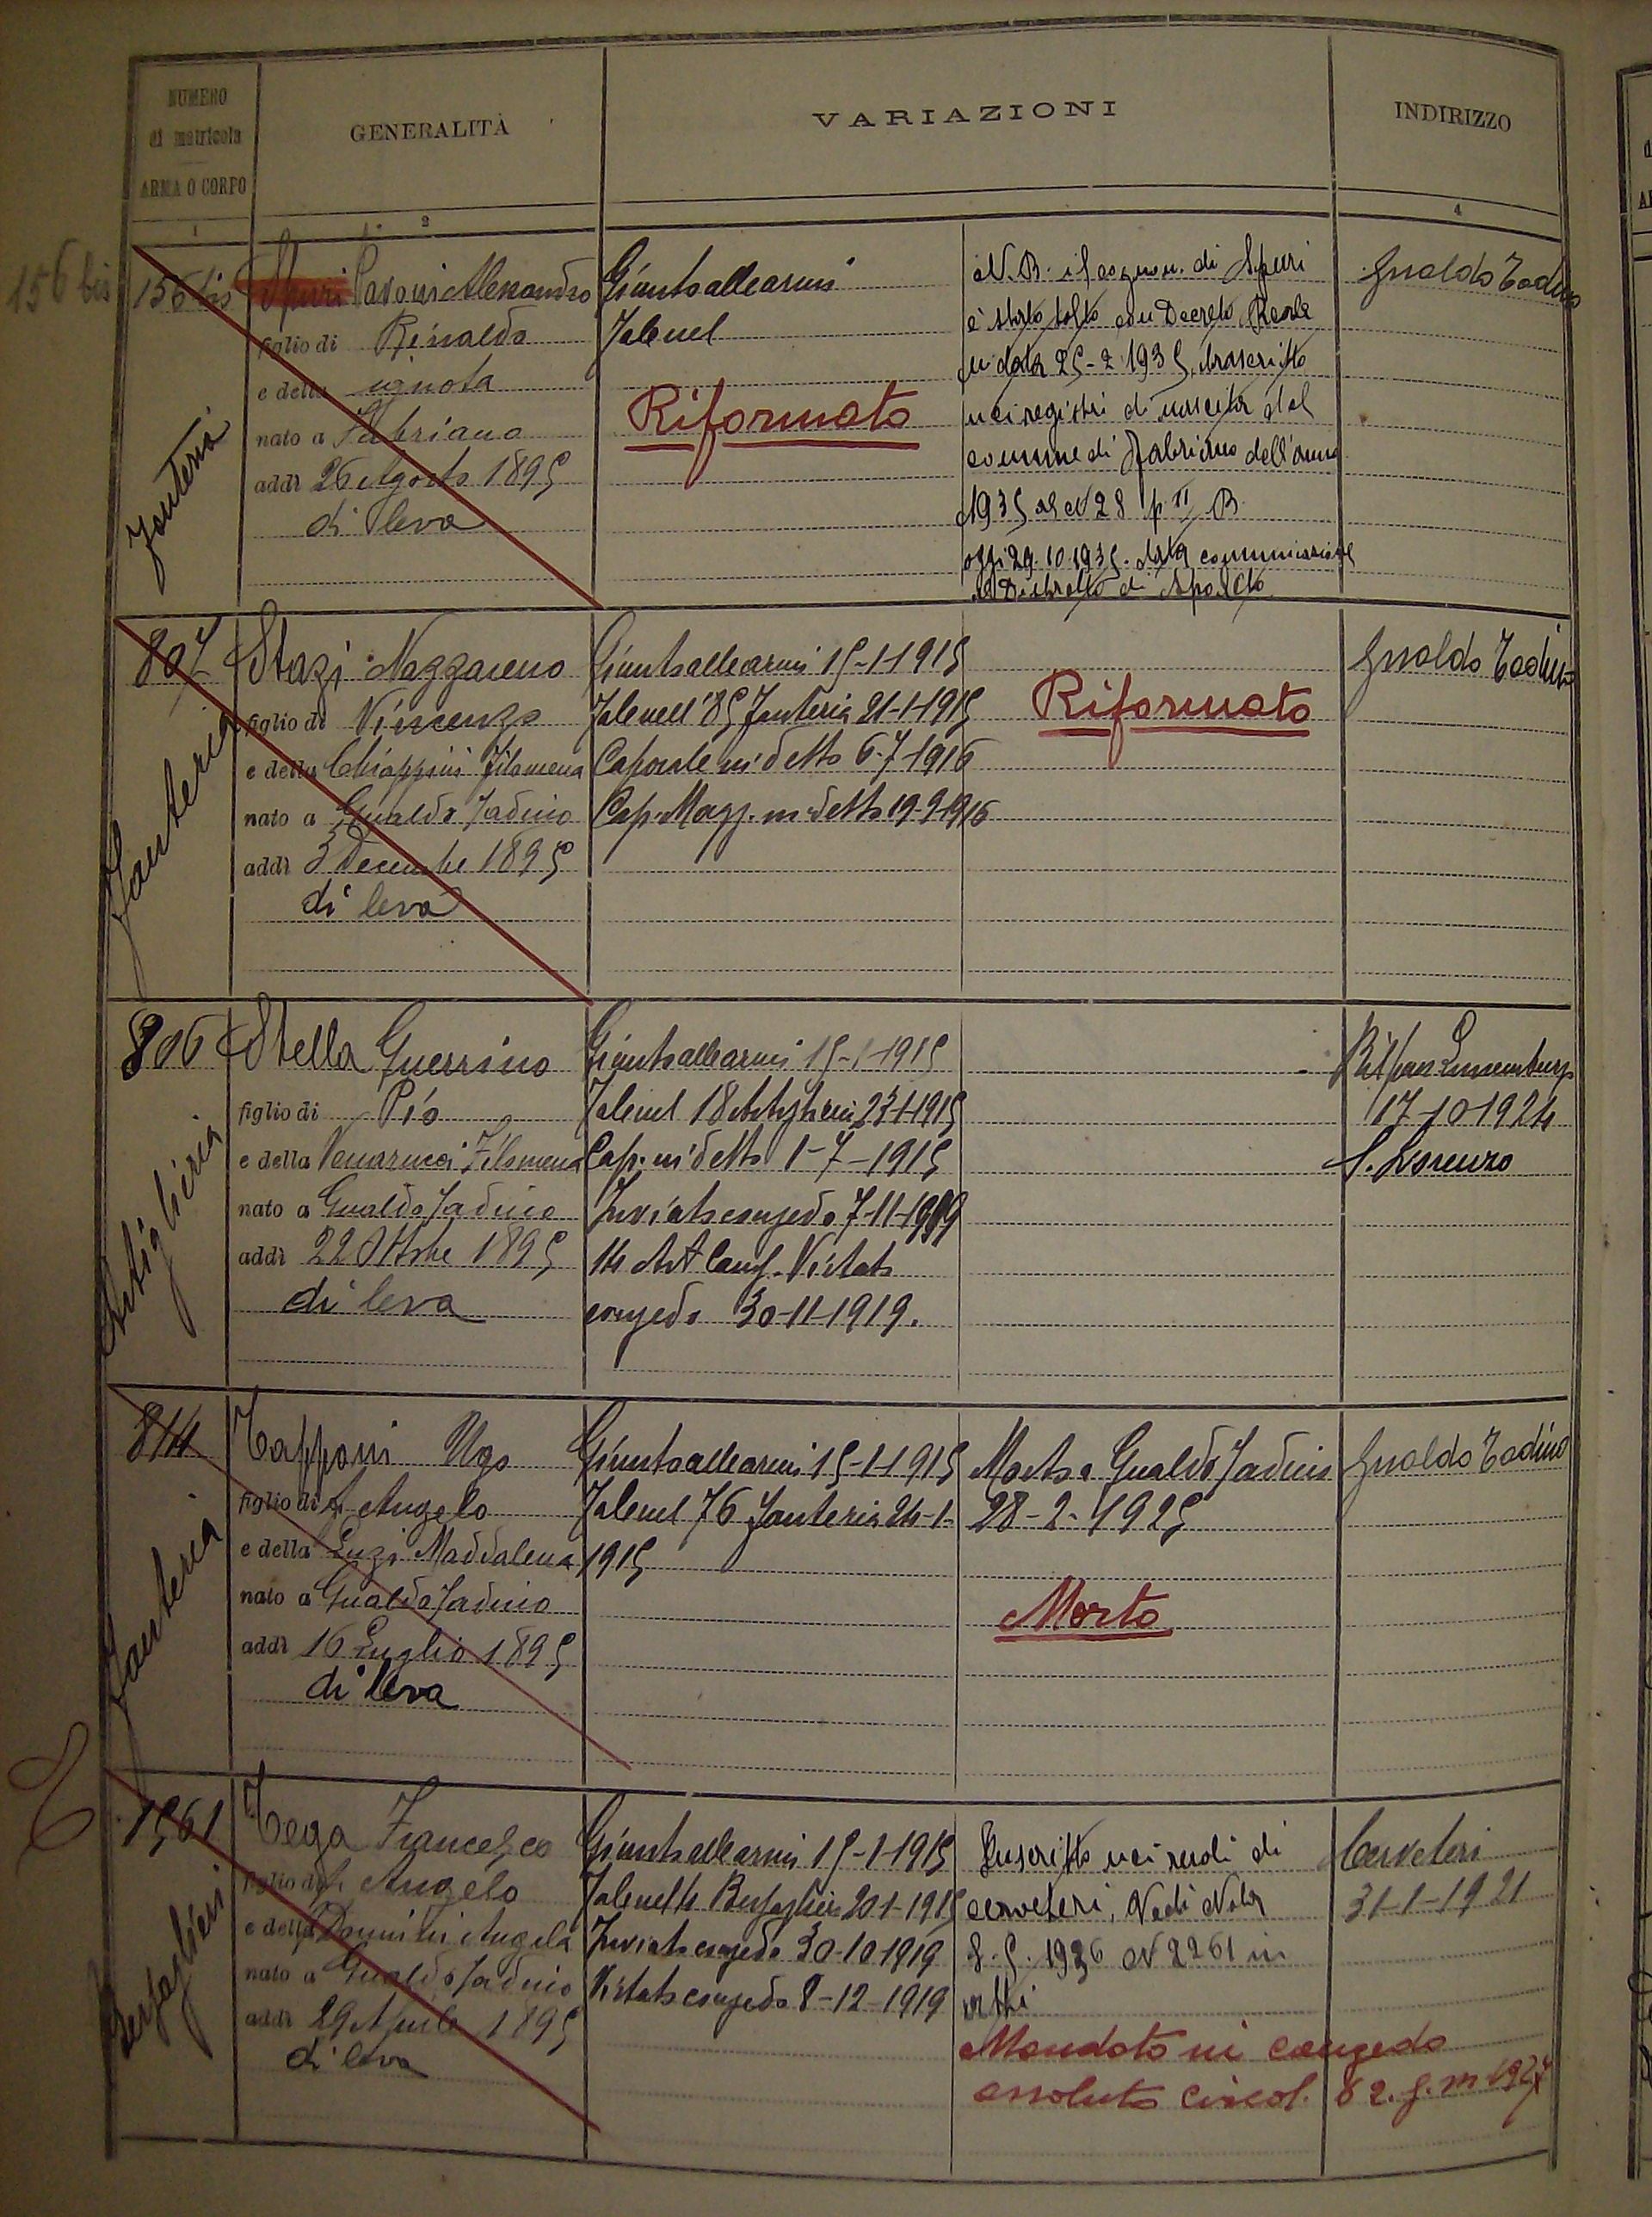 NUMERO
di matricola
ARMA O CORPO
GENERALITÀ
VARIAZIONI
INDIRIZZO
1
2
4
156 bis
156 bis
Fanteria
Spuri Pavoni Alessandro
figlio di Rinaldo
e della ignota
nato a Fabriano
addì 26 Agosto 1895
di leva
Giunto alle armi
Tale nel
Riformato
N.B. il cognom. di Spuri
è stato tolto con Decreto Reale
in data 25-2 1935, trascritto
nei registri di nascita del
comune di Fabriano dell'anno
1935 al N 28 p II B
oggi 29.10.1935. data comunicazione
al Distretto di Spoleto
Gualdo Tadino
807
Fanteria
Stazi Nazzareno
figlio di Vincenzo
e della Chiappini Filomena
nato a Gualdo Tadino
addì 3 Decembe 1895
di leva
Giunto alle armi 15-1-1915
Tale nell' 85 Fanteria 21-1-1915
Caporale in detto 6-7-1916
Cap. Magg. in detto 19-9-1916
Riformato
Gualdo Tadino
806
Artiglieria
Stella Guerrino
figlio di Pio
e della Filomena
nato a Gualdo Tadino
addì 22 Ottobe 1895
di leva
Giunto alle armi 15-1-1915
Tale nel 18 Artiglieria 23-1-1915
Cap. in detto 1-7-1915
Inviato congedo 7-11-1919
14 Art Camp. Vistato
congedo 30-11-1919.
17-10-1924
S. Lorenzo
814
Fanteria
Tapponi Ugo
figlio di Angelo
e della Luzi Maddalena
nato a Gualdo Tadino
addì 16 Luglio 1895
di leva
Giunto alle armi 15-1-1915
Tale nel 76 Fanteria 24-1-
1915
Morto a Gualdo Tadino
28-2-1925
Morto
Gualdo Tadino
1561
Bersaglieri
Tega Francesco
figlio di Angelo
e della Angela
nato a Gualdo Tadino
addì 29 Aprile 1895
di leva
Giunto alle armi 15-1-1915
Tale nel 4 Bersaglieri 20-1-1915
Inviato congedo 30-10-1919
Vistato congedo 8-12-1919
Inscritto nei ruoli di
cerveteri, Vedi Nota
8.5.1926 N 2261 in
atti
Mandato in congedo
assoluto circol. 82. g. m 1927
Cerveteri
31-1-1921